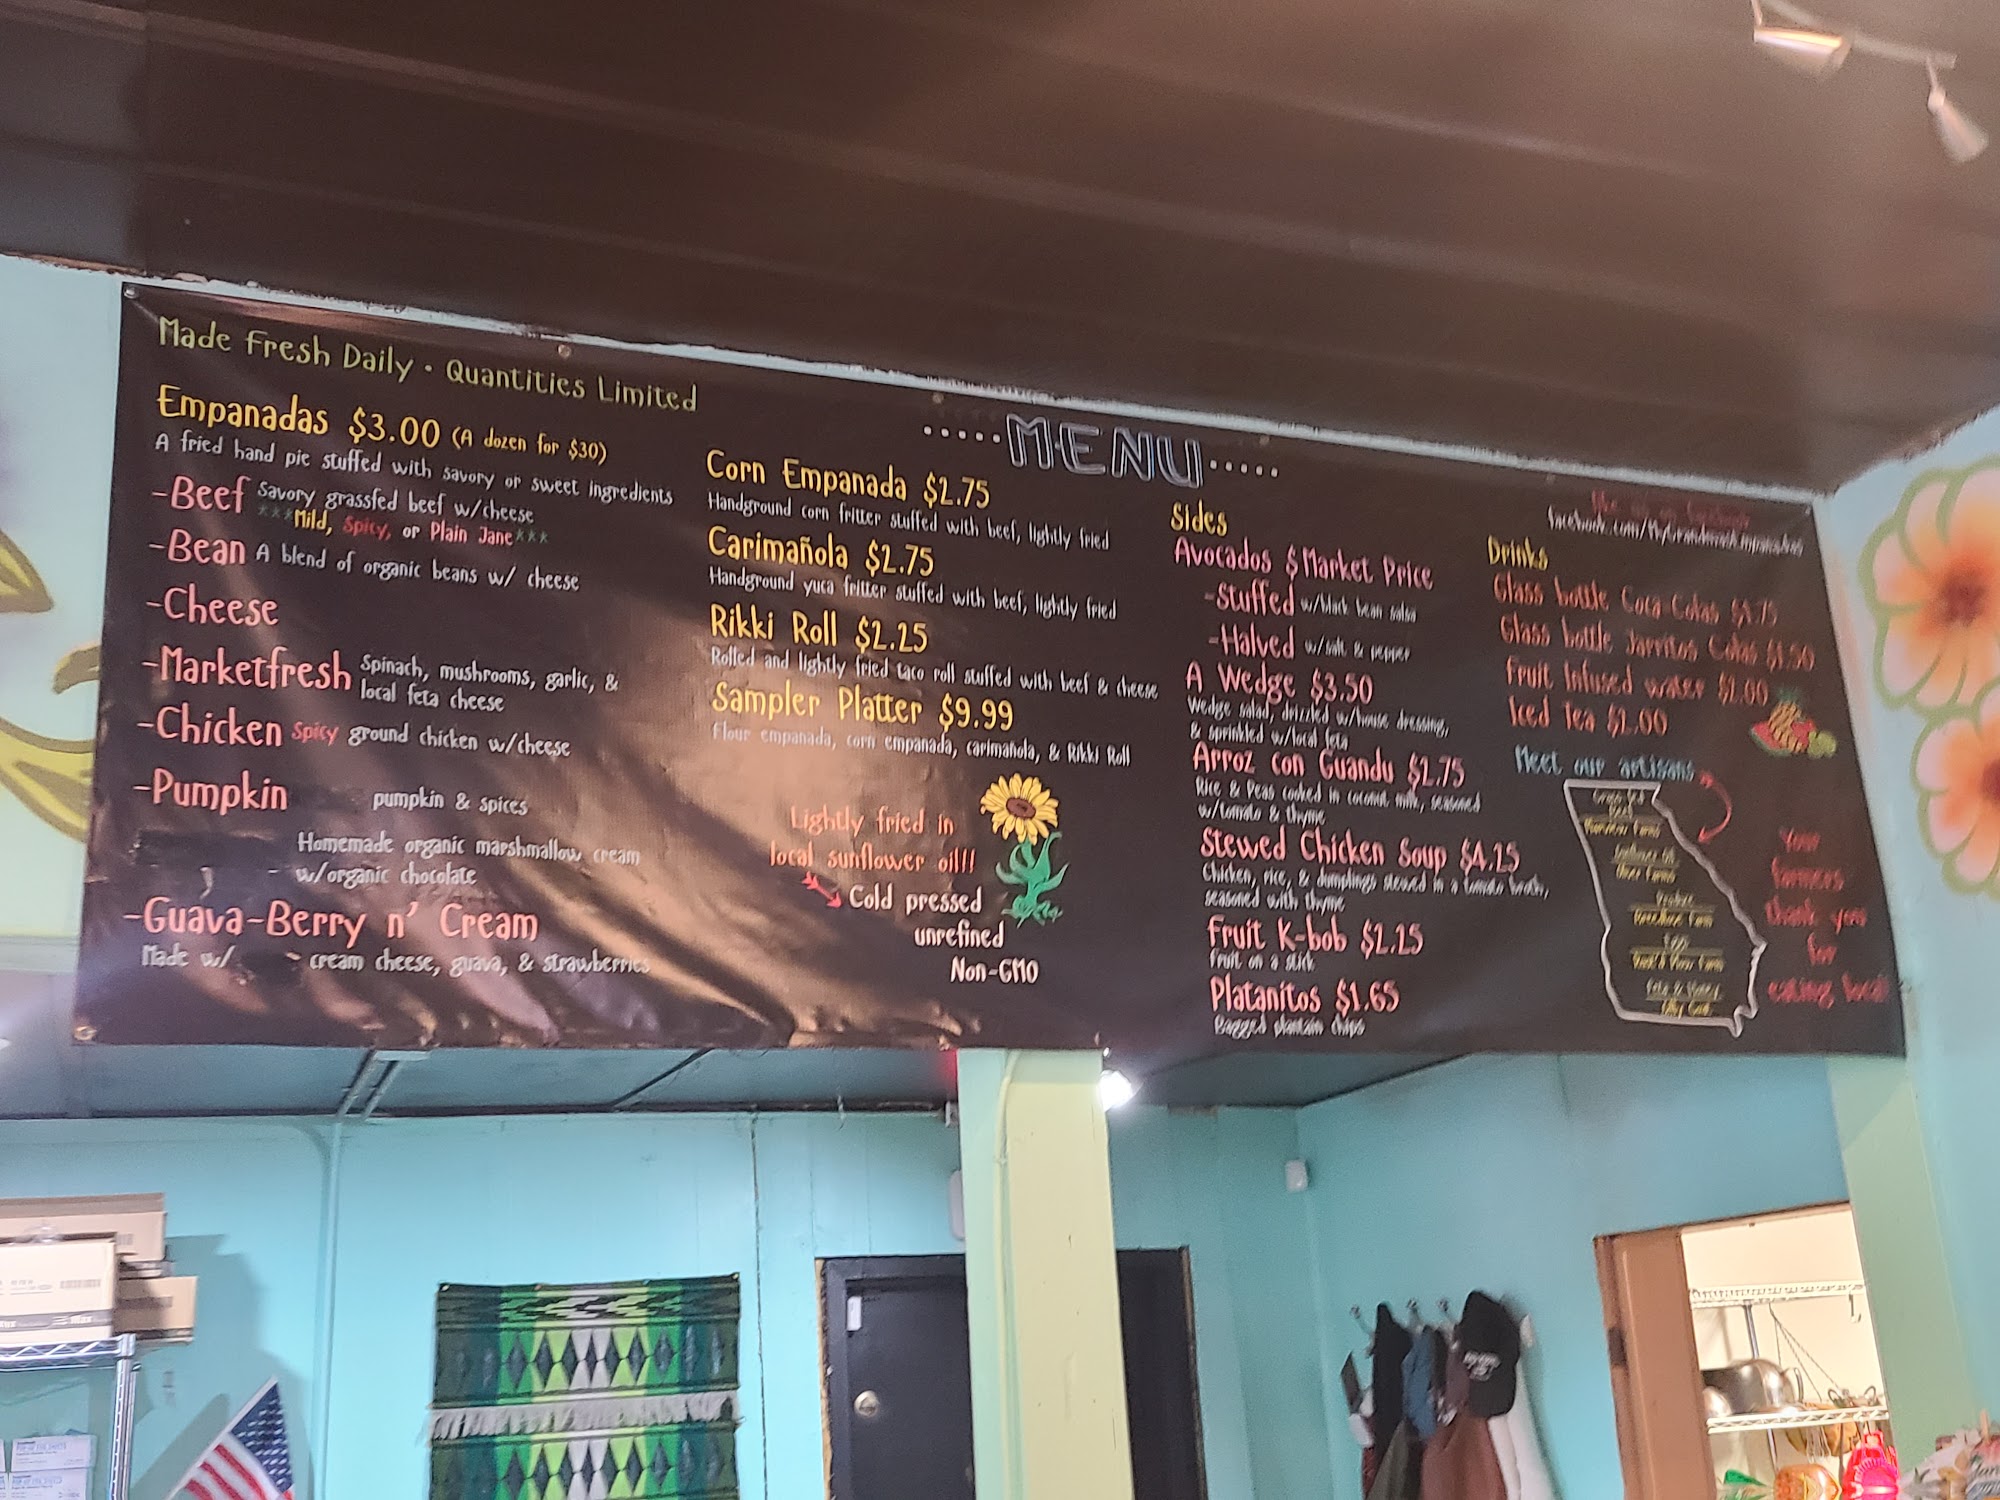 Made Fresh Daily • Quantities Limited
Empanadas $3.00 (A dozen for $30)
A fried hand pie stuffed with savory or sweet ingredients
-Beef Savory grassfed beef w/cheese
***Mild, Spicy, or Plain Jane***
-Bean A blend of organic beans w/ cheese
-Cheese
-Marketfresh Spinach, mushrooms, garlic, &
local feta cheese
-Chicken Spicy ground chicken w/cheese
-Pumpkin pumpkin & spices
Homemade organic marshmallow cream
w/organic chocolate
-Guava-Berry n' Cream
Made w/ cream cheese, guava, & strawberries
.....MENU.....
Corn Empanada $2.75
Handground corn fritter stuffed with beef, lightly fried
Carimañola $2.75
Handground yuca fritter stuffed with beef, lightly fried
Rikki Roll $2.25
Rolled and lightly fried taco roll stuffed with beef & cheese
Sampler Platter $9.99
Flour empanada, corn empanada, carimañola, & Rikki Roll
Lightly fried in
local sunflower oil!!
Cold pressed
unrefined
Non-GMO
Sides
Avocados $Market Price
-Stuffed w/black bean salsa
-Halved w/salt & pepper
A Wedge $3.50
Wedge salad, drizzled w/house dressing,
& sprinkled w/local feta
Arroz con Guandu $2.75
Rice & Peas cooked in coconut milk, seasoned
w/tomato & thyme
Stewed Chicken Soup $4.25
Chicken, rice, & dumplings stewed in a tomato broth,
seasoned with thyme
Fruit K-bob $2.25
Fruit on a stick
Platanitos $1.65
Bagged plantain chips
facebook.com/MyGrandmasEmpanadas
Drinks
Glass bottle Coca-Colas $1.75
Glass bottle Jarritos Colas $1.50
Fruit Infused water $2.00
Iced Tea $2.00
Meet our artisans
Your
farmers
thank you
for
eating local